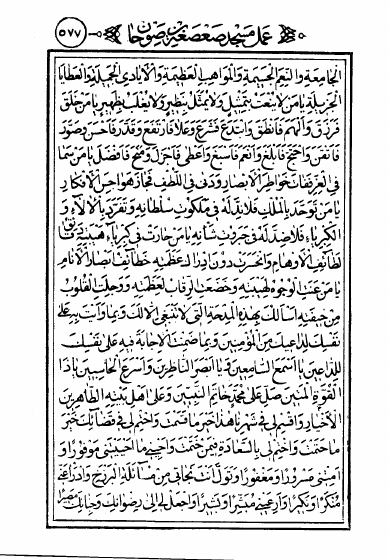 عمل مسجد صعصعة بن صوحان ٥٧٧
الجامعة والنعم الجسيمة والمواهب العظيمة والايادى الجميلة والعطايا
الجزيلة يا من لا ينعت بتمثيل ولا يمثل بنظير ولا يغلب بظهير يا من خلق
فرزق والهم فانطق وابتدع فشرع وعلا فارتفع وقدر فاحسن وصور
فاتقن واحتج فابلغ وانعم فاسبغ واعطى فاجزل ومنح فافضل يا من سما
فى العز ففات خواطر الابصار ودنى فى اللطف فجاز هواجس الافكار
يا من توحد بالملك فلا ند له فى ملكوت سلطانه وتفرد بالالاء و
الكبرياء فلا ضد له فى جبروت شانه يا من حارت فى كبرياء هيبته دقايق
لطائف الاوهام وانحسرت دون ادراك عظمته خطائف ابصار الانام
يا من عنت الوجوه لهيبته وخضعت الرقاب لعظمته ووجلت القلوب
من خيفته اسالك بهذه المدحة التى لا تنبغى الا لك وبما وايت به على
نفسك لداعيك من المؤمنين وبما ضمنت الاجابة فيه على نفسك
للداعين يا اسمع السامعين ويا ابصر الناظرين واسرع الحاسبين يا ذا
القوة المتين صل على محمد خاتم النبيين وعلى اهل بيته الطاهرين
الاخيار واقسم لى فى شهرنا هذا خير ما قسمت واختم لى فى قضائك خير
ما حتمت واختم لى بالسعادة فيمن ختمت واحينى ما احييتنى موفورا و
امتنى مسرورا ومغفورا وتول انت نجاتى من مسائلة البرزخ وادرا عنى
منكرا ونكيرا وار عينى مبشرا وبشيرا واجعل لى الى رضوانك وجنانك مصيرا